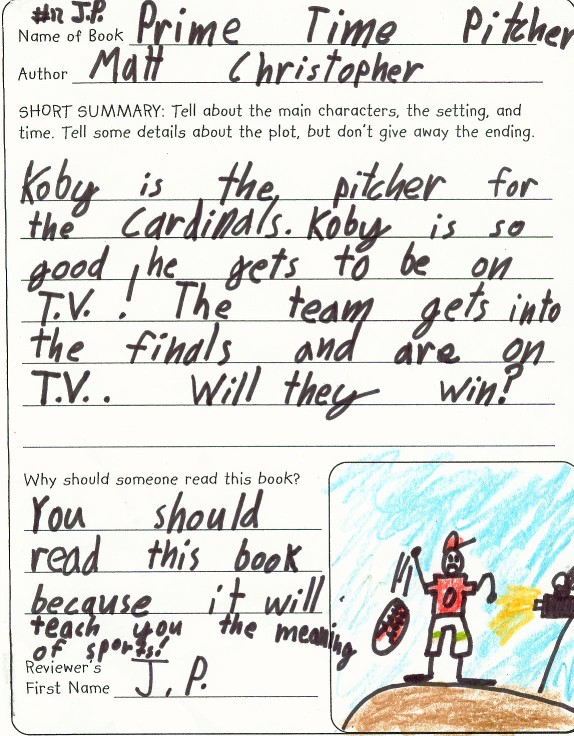 #12 J.P.
Name of Book Prime Time Pitcher
Author Matt Christopher
SHORT SUMMARY: Tell about the main characters, the setting, and
time. Tell some details about the plot, but don't give away the ending.
Koby is the pitcher for
the Cardinals. Koby is so
good, he gets to be on
T.V.! The team gets into
the finals and are on
T.V.. Will they win?
Why should someone read this book?
You should
read this book
because it will
teach you the meaning
of sports!
Reviewer's
First Name J.P.
0